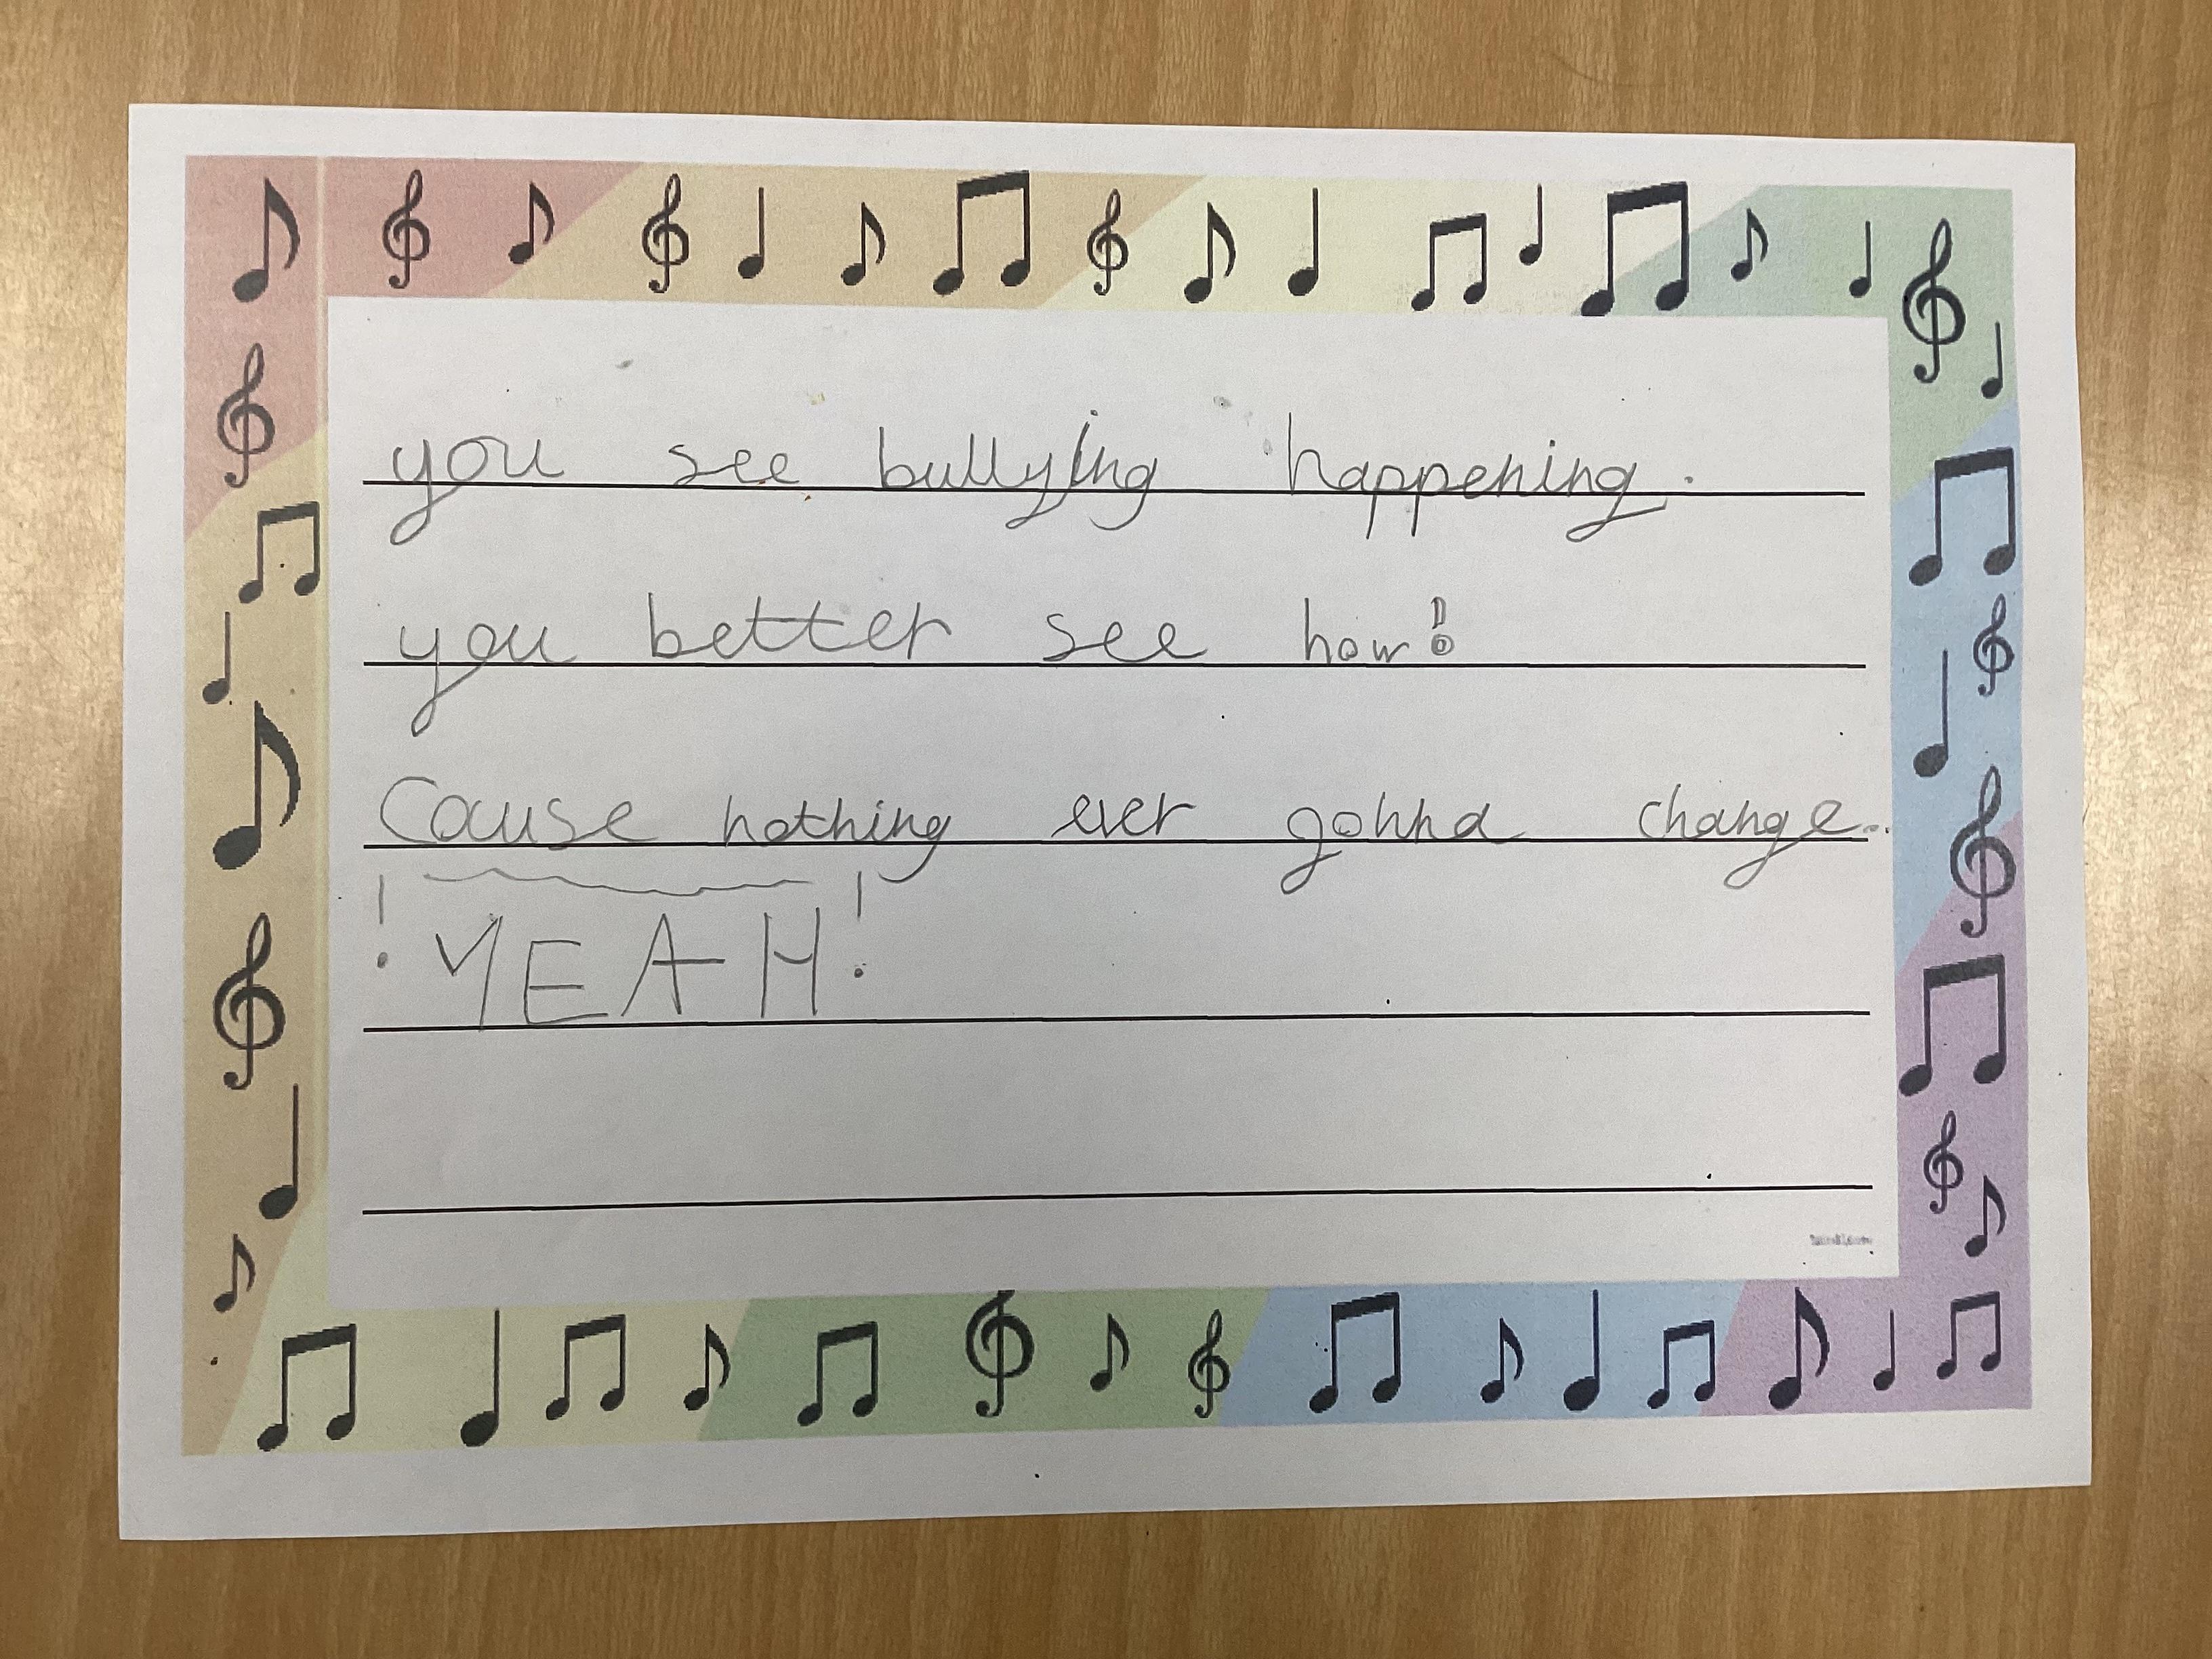 you see bullying happening.
you better see how!
Cause nothing ever gonna change..
! YEAH!